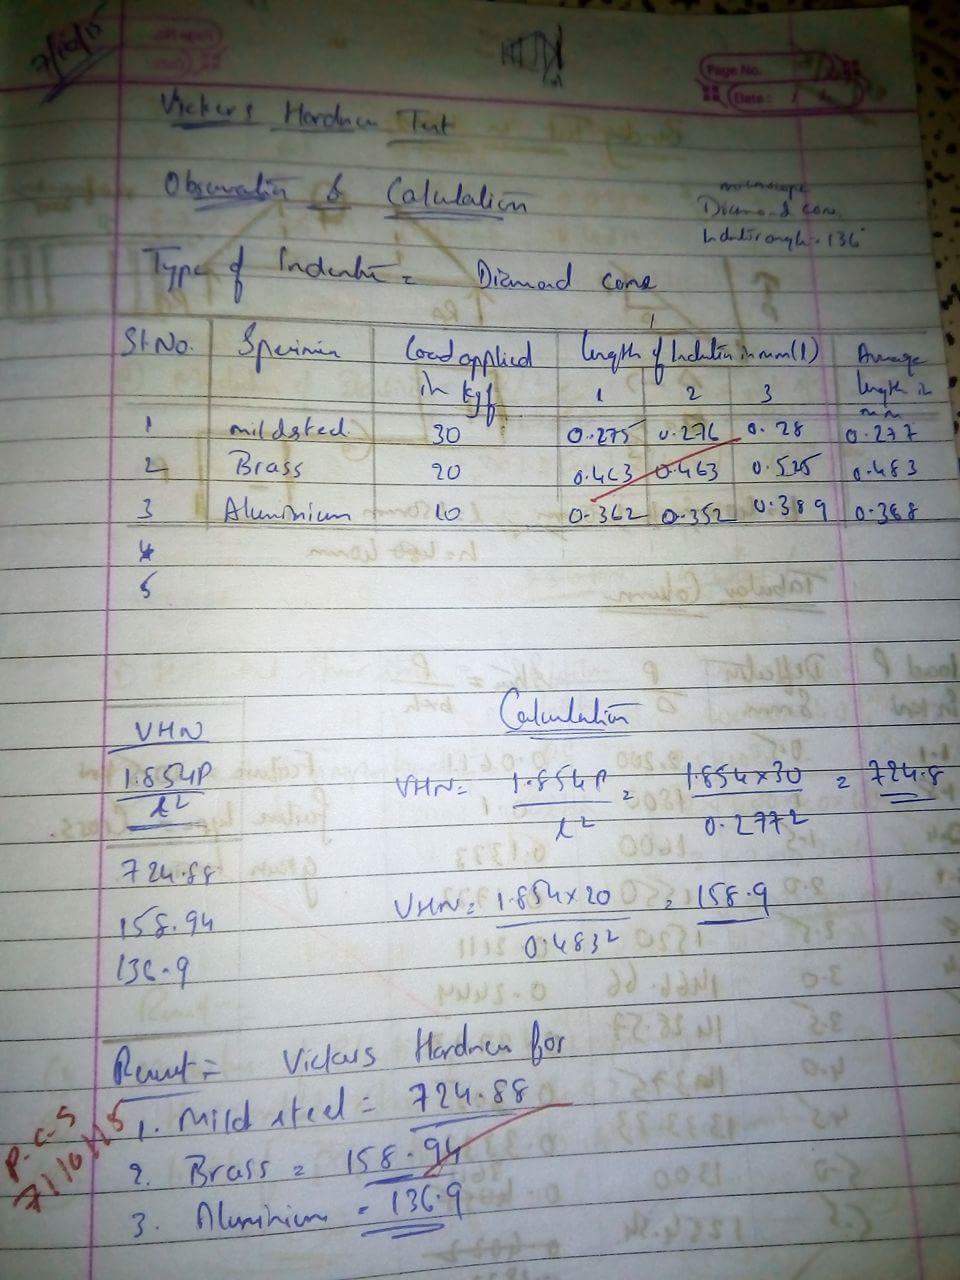 7/10/15
Page No.
Date:
Vickers Hardness Test
Observation & Calculation
microscope
Diamond cone
Indenter angle = 136°
Type of Indenter = Diamond cone
Sl.No. Specimen Load applied in kgf Length of Indentation in mm (l) Average length in mm
1 2 3
1 mild steel 30 0.275 0.276 0.28 0.277
2 Brass 20 0.463 0.463 0.525 0.483
3 Aluminium 10 0.362 0.352 0.389 0.368
4
5
Calculation
VHN
1.854P
l²
VHN = 1.854P / l² = 1.854 × 30 / 0.277² = 724.8
724.88
VHN = 1.854 × 20 / 0.483² = 158.9
158.94
136.9
Result = Vickers Hardness for
1. Mild steel = 724.88
2. Brass = 158.94
3. Aluminium = 136.9
P.C.S
7/10/15